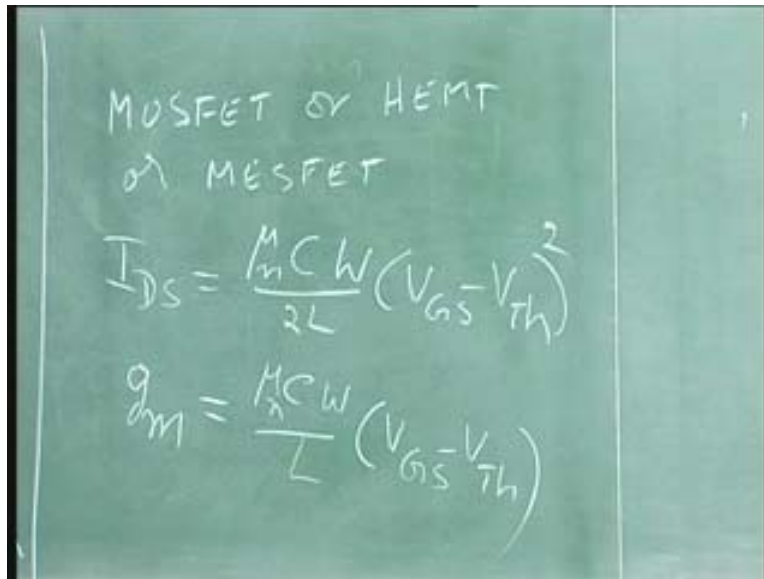 MOSFET or HEMT
or MESFET
I_DS = μ_n C W / 2L (V_GS - V_Th)^2
g_m = μ_n C W / L (V_GS - V_Th)